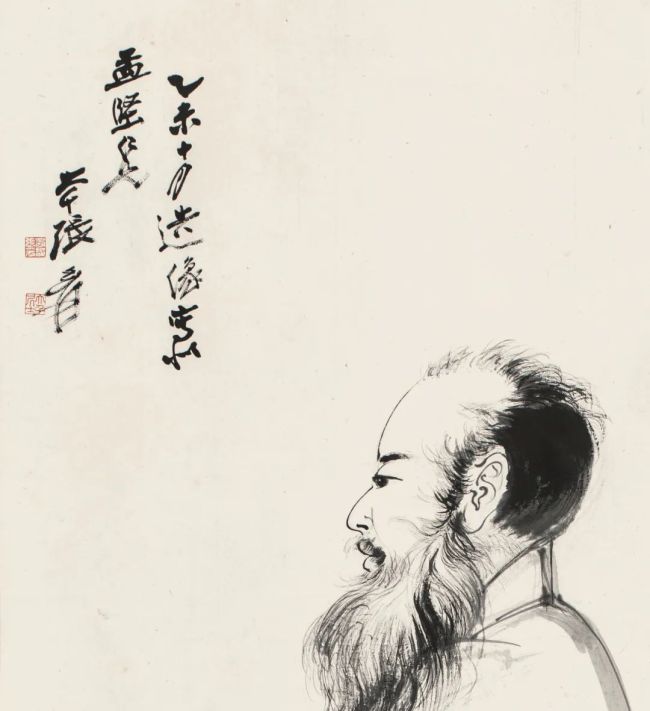 乙未十月造像寄似
孟堅仁兄
大千張爰